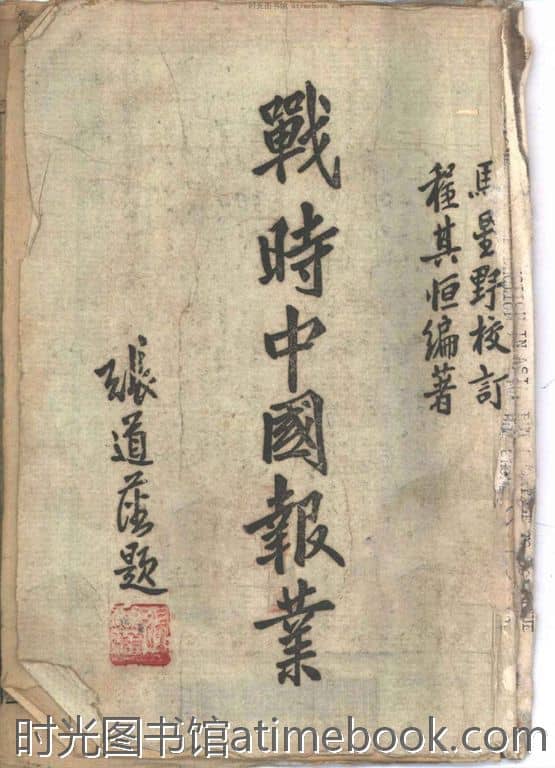 时光图书馆 atimebook.com
馬星野校訂
程其恒編著
戰時中國報業
張道藩題
时光图书馆atimebook.com